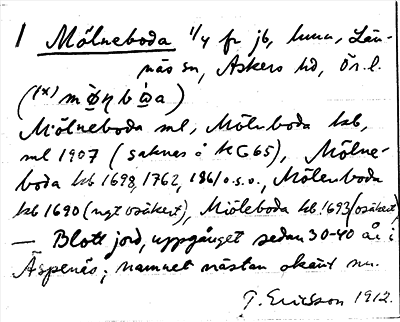 1 Mölneboda 1/4 fr jb, hmn, Län-
näs sn, Askers hd, Ör. l.
(1x) m
Mölneboda ml, Mölnboda kb,
ml 1907 (saknas å KG65), Mölne-
boda kb 1698, 1762, 1861 o.s.o., Mölenboda
kb 1690 (ngt osäkert), Möleboda kb. 1693 (osäkert)
— Blott jord, uppgånget sedan 30-40 år i
Äspenäs; namnet nästan okänt nu.
T. Ericsson 1912.